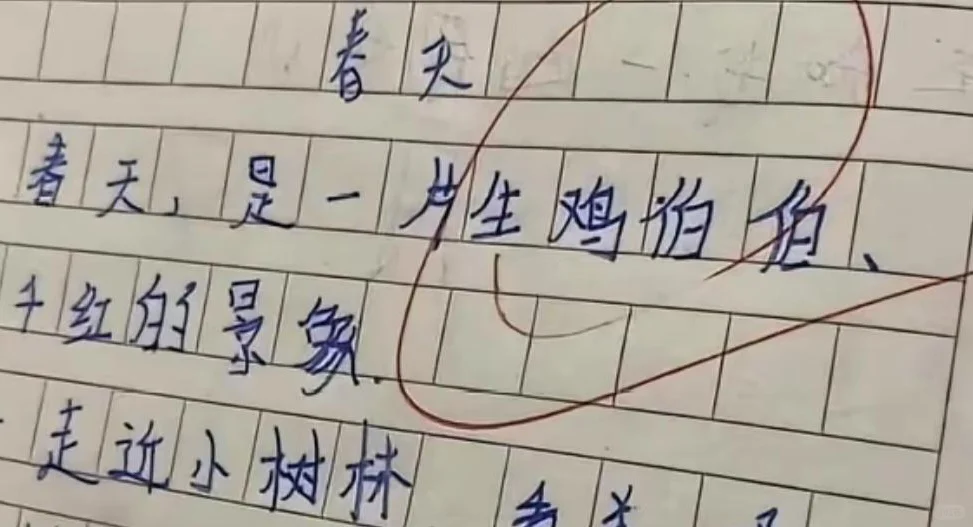 春天
春天，是一片生鸡伯伯、
千红的景象.
走近小树林